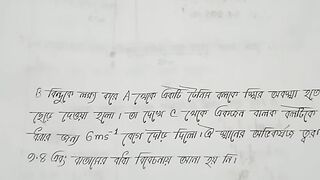 B বিন্দুকে লক্ষ্য করে A থেকে একটি টেনিস বলকে স্থির অবস্থা হতে
ছেড়ে দেওয়া হলো। তা দেখে C থেকে একজন বালক বলটিকে
ধরার জন্য 6ms⁻¹ বেগে দৌড় দিলো। ঐ স্থানের অভিকর্ষজ ত্বরণ
৯.৪ এবং বাতাসের বাঁধা বিবেচনায় আনা হয় নি।